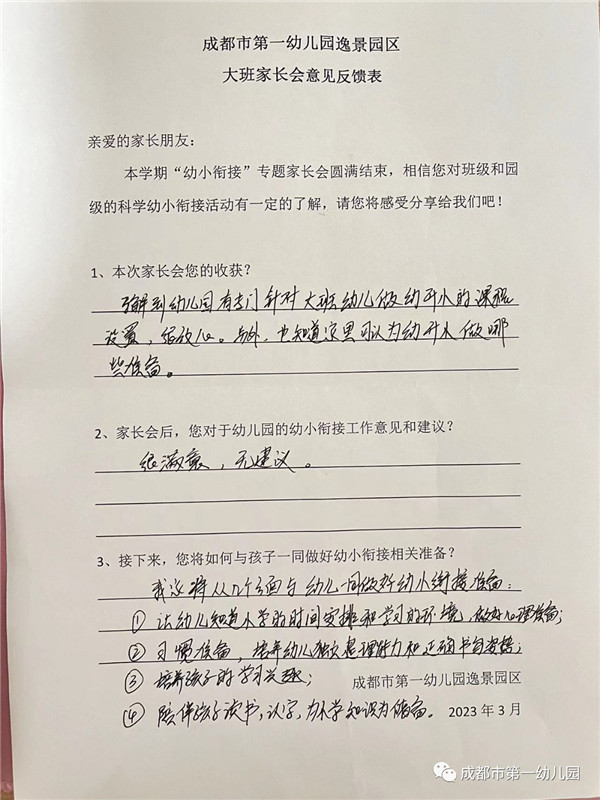 成都市第一幼儿园逸景园区
大班家长会意见反馈表
亲爱的家长朋友：
本学期“幼小衔接”专题家长会圆满结束，相信您对班级和园
级的科学幼小衔接活动有一定的了解，请您将感受分享给我们吧！
1、本次家长会您的收获？
了解到幼儿园有专门针对大班幼儿做幼升小的课程
设置，很放心。另外，也知道这里可以为幼升小做哪
些准备。
2、家长会后，您对于幼儿园的幼小衔接工作意见和建议？
很满意，无建议。
3、接下来，您将如何与孩子一同做好幼小衔接相关准备？
我们将从几个方面与幼儿一同做好幼小衔接准备：
① 让幼儿知道小学的时间安排和学习的环境，做好心理准备；
② 习惯准备，培养幼儿独立整理能力和正确书写姿势；
③ 培养孩子的学习兴趣；
成都市第一幼儿园逸景园区
④ 陪伴孩子读书，认字，为小学知识为储备。
2023 年 3 月
成都市第一幼儿园